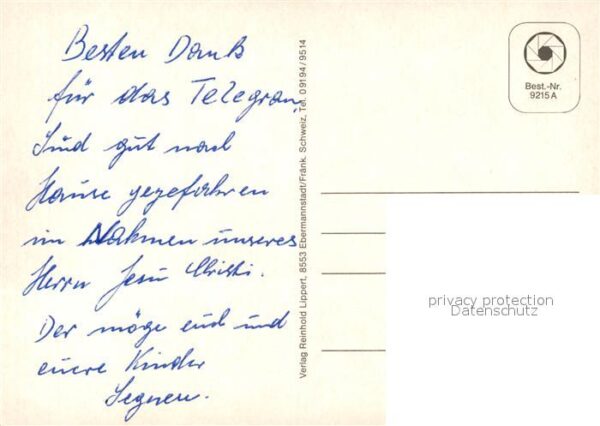 Besten Dank
für das Telegram,
Sind gut nach
Hause gezefahren
im Nahmen unseres
Herrn Jesu Christi.
Der möge euch und
euere Kinder
Segnen.
Verlag Reinhold Lippert, 8553 Ebermannstadt/Fränk. Schweiz, Tel. 0 91 94 / 95 14
Best.-Nr.
9215 A
privacy protection
Datenschutz